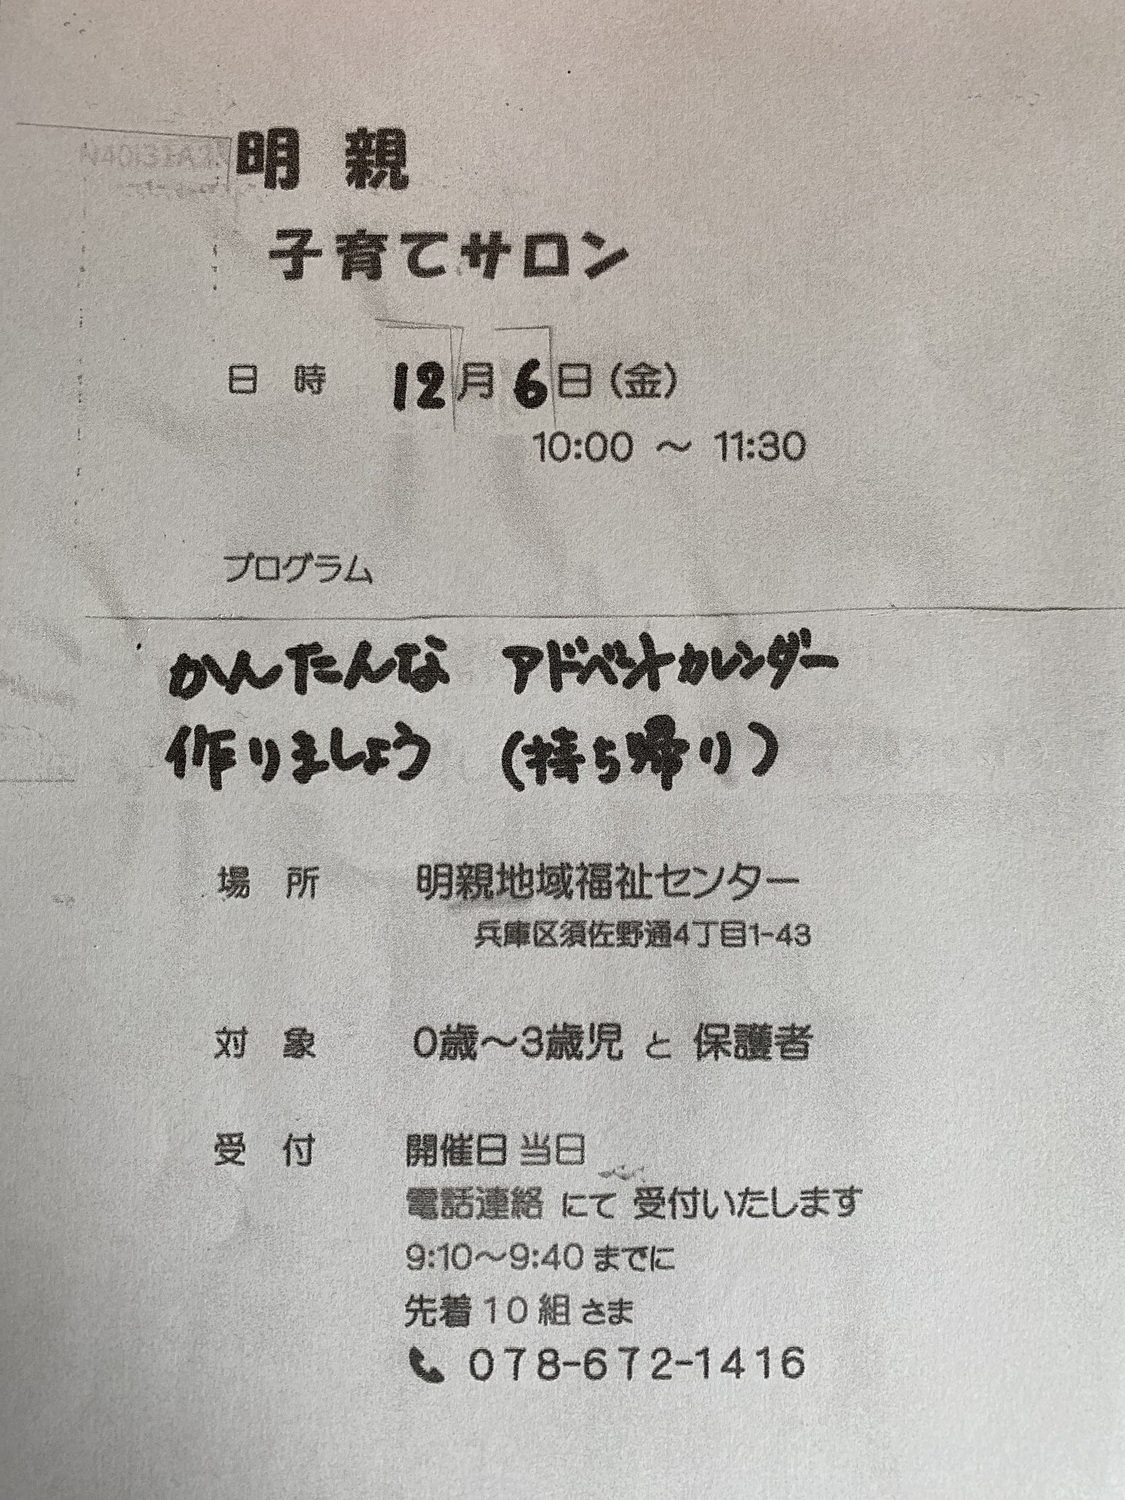 明 親
子育てサロン
日 時 12月6日(金)
10:00 ～ 11:30
プログラム
かんたんな アドベントカレンダー
作りましょう (持ち帰り)
場 所 明親地域福祉センター
兵庫区須佐野通4丁目1-43
対 象 0歳～3歳児 と 保護者
受 付 開催日 当日
電話連絡 にて 受付いたします
9:10～9:40 までに
先着 10 組 さま
078-672-1416